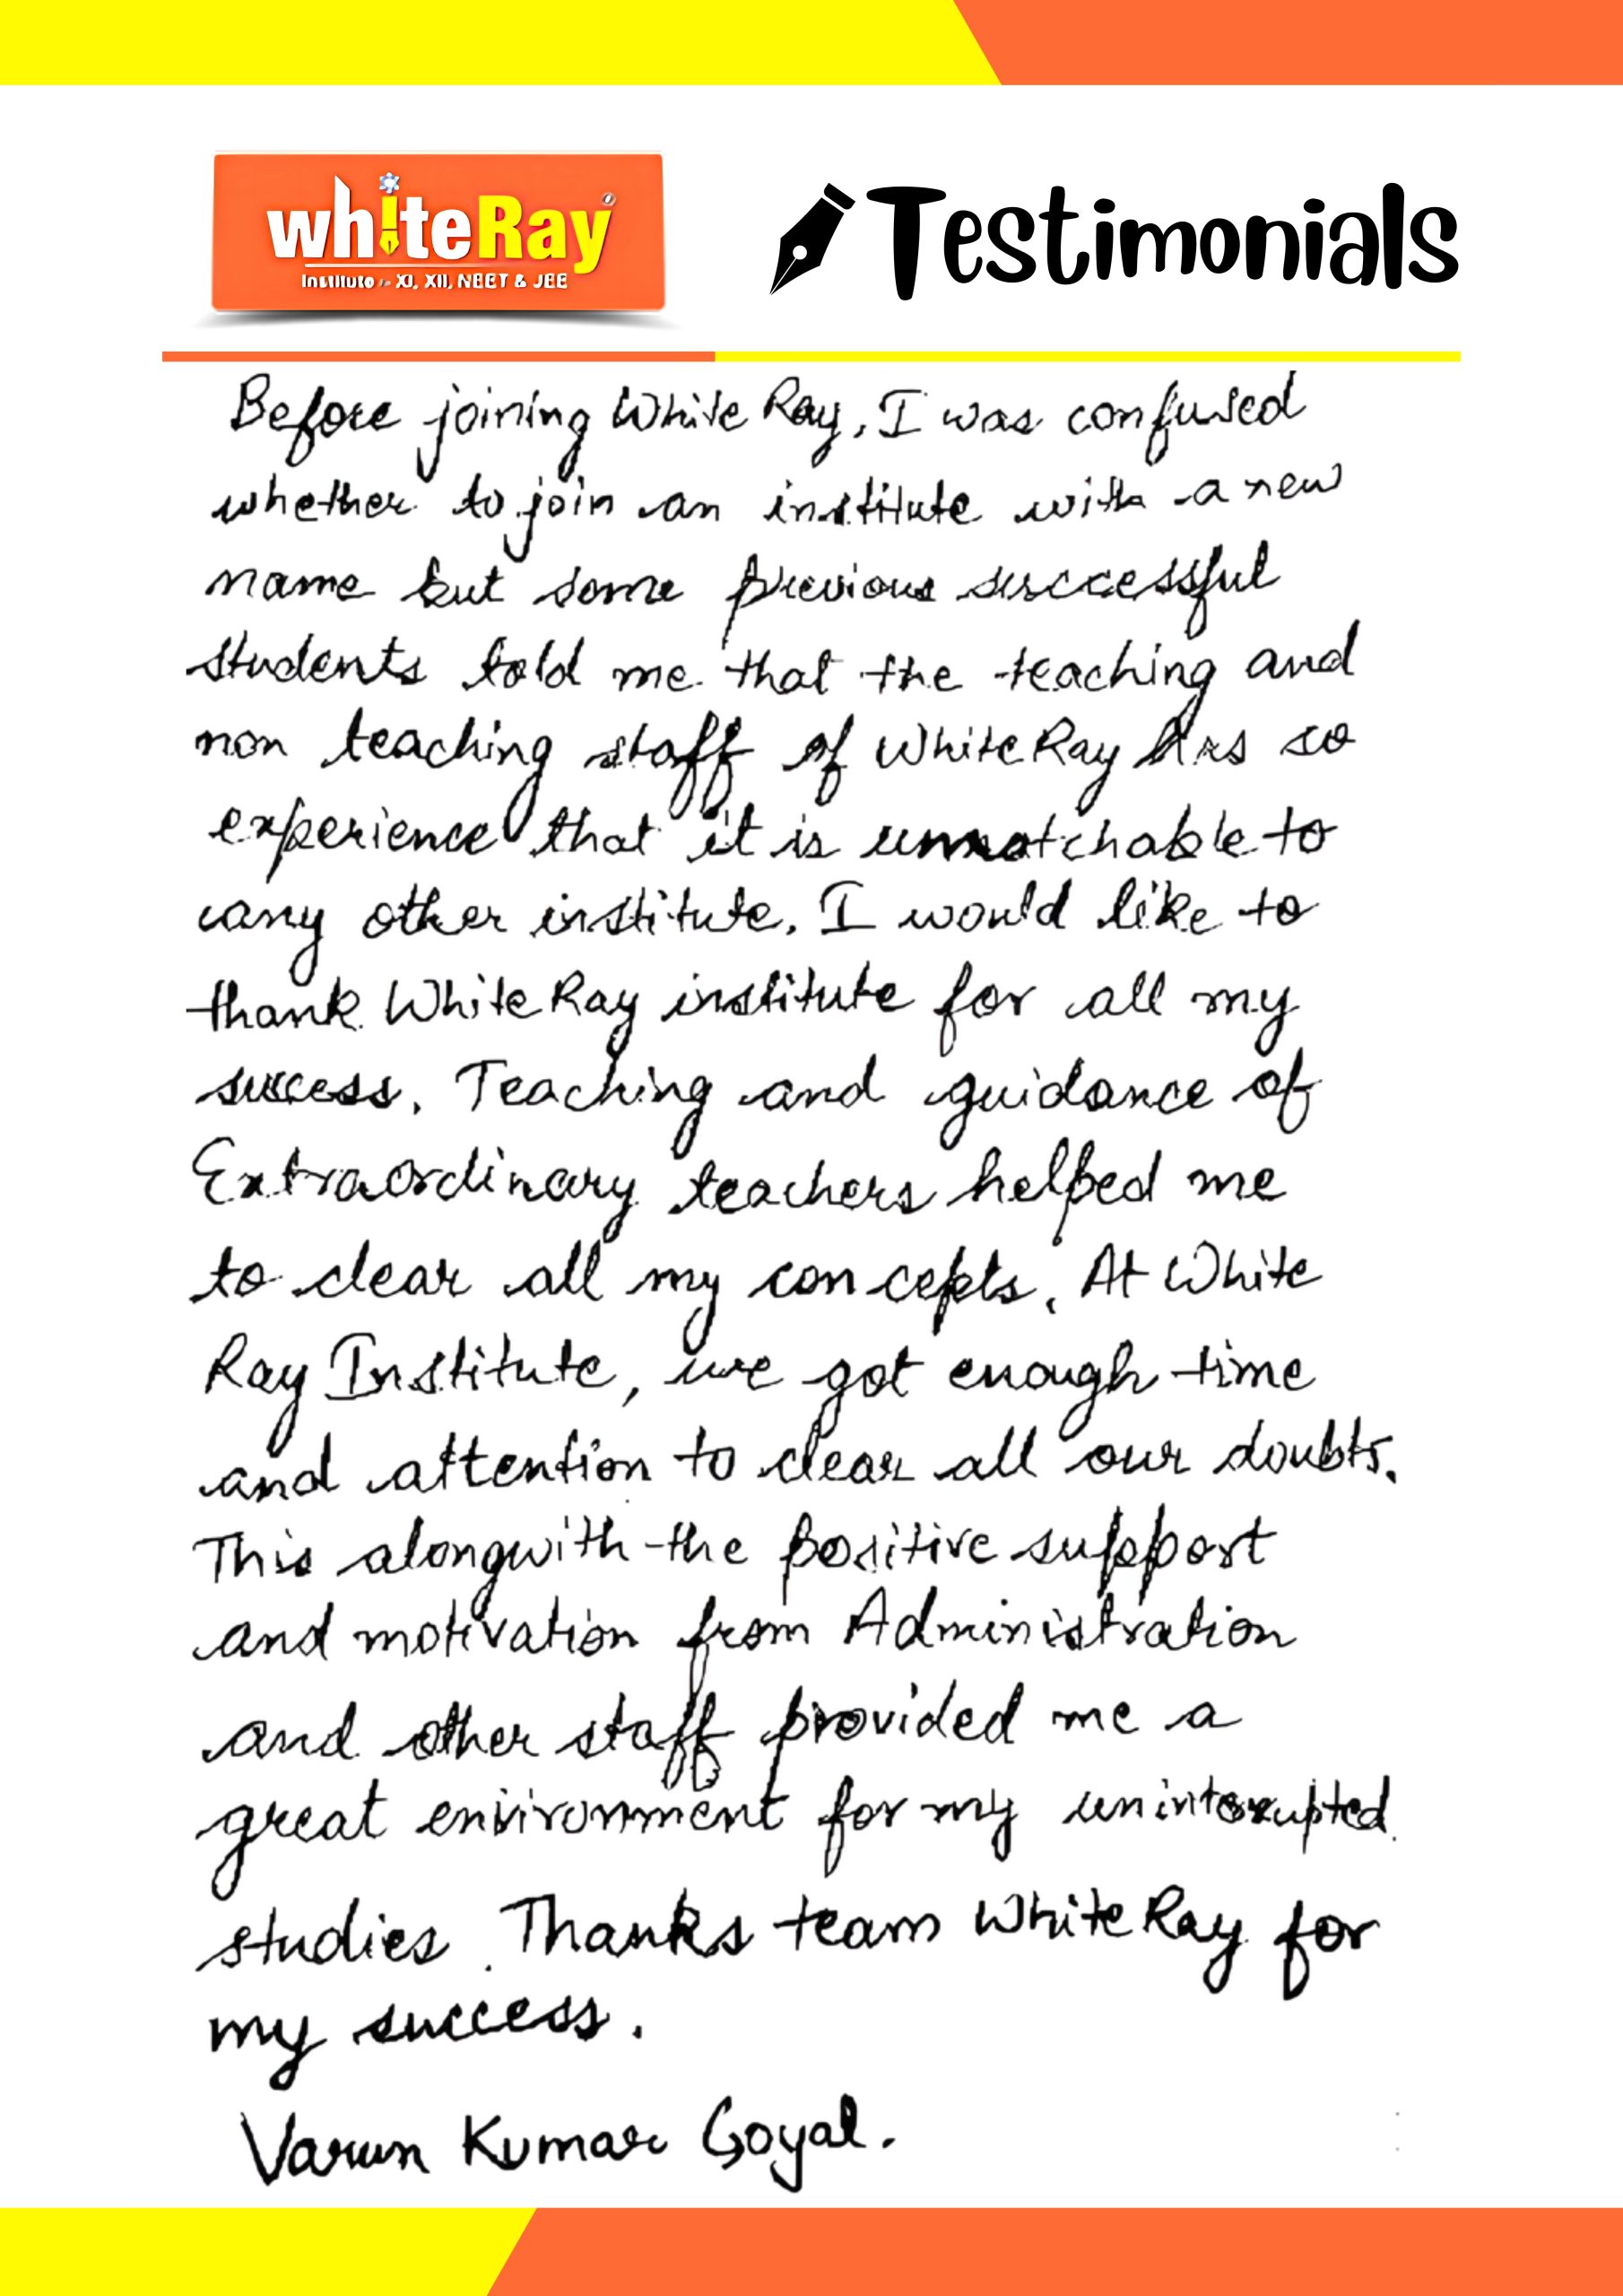 whiteRay
Institute - XI, XII, NEET & JEE
Testimonials
Before joining White Ray, I was confused
whether to join an institute with a new
name but some previous successful
students told me that the teaching and
non teaching staff of White Ray has so
experience that it is unmatchable to
any other institute. I would like to
thank White Ray institute for all my
success. Teaching and guidance of
Extraordinary teachers helped me
to clear all my concepts. At White
Ray Institute, we got enough time
and attention to clear all our doubts.
This alongwith the positive support
and motivation from Administration
and other staff provided me a
great environment for my uninterrupted
studies. Thanks team White Ray for
my success.
Varun Kumar Goyal.